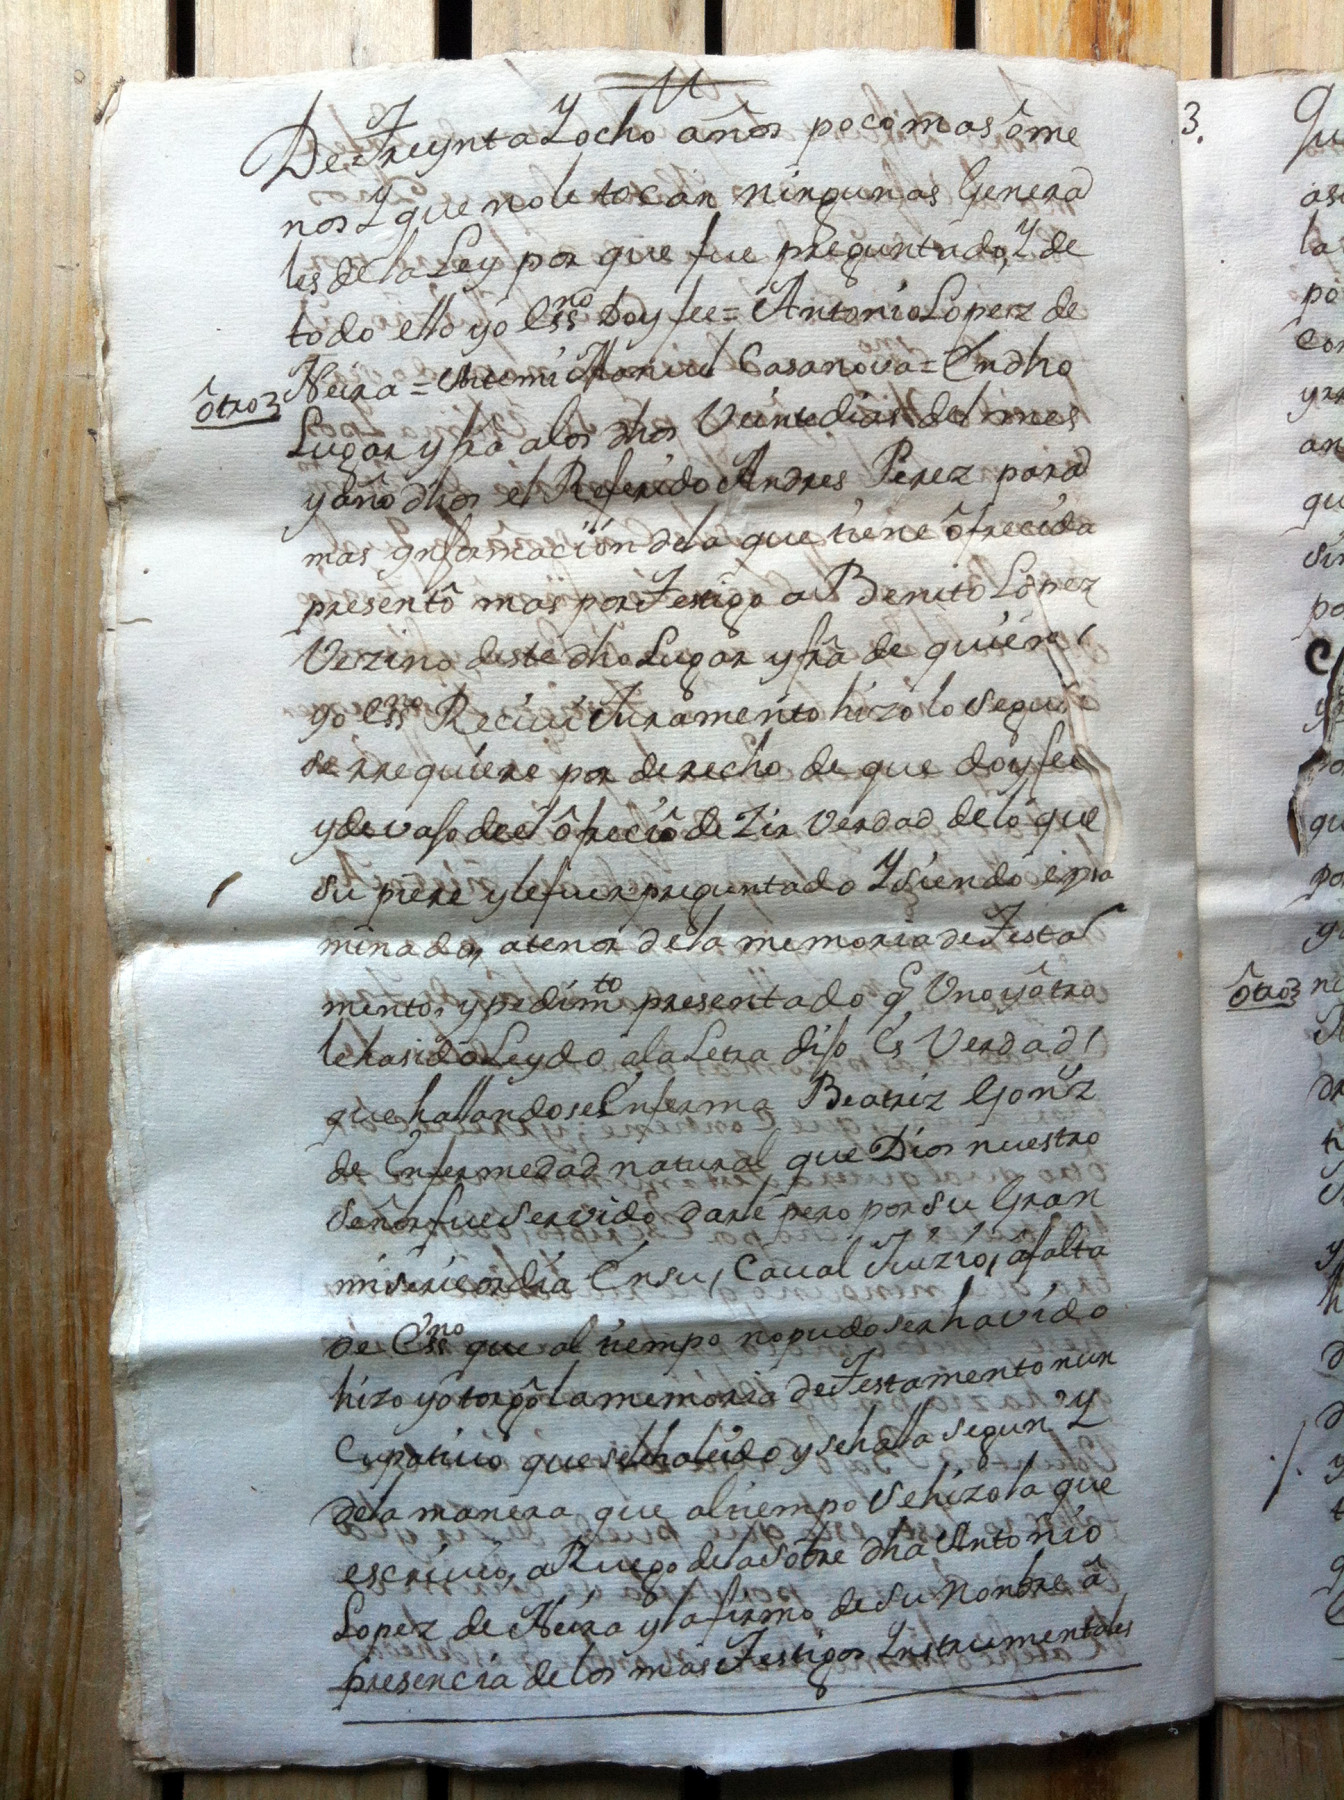 De Treynta Y ocho años poco mas ô me
nos Y que no le tocan ningunas Genera
les de la Ley por que fue preguntado, Y de
todo ello yo essno Doy fee = Antonio Lopez de
Neira = Antemi Manuel Casanova = En dho
ôtro
Lugar y fra a los dhos Veinte dias del mes
y año dhos el Referido Andres Perez para
mas ynformaciion de la que tiene ôfrecida
presentô mas por Testigo a Benito Lopez
Vezino deste dho Lugar y frâ de quien
yo essno Reciui Juramento hizolo segun
se rrequiere por derecho de que doy fee
y devaso de el ôfreciô de Zir Verdad de lo que
supiere y le fuer preguntado Y siendo exsa
minado, atenor de la memoria de Testa
mento, y pedimto presentado q Uno y ôtro
le hasido Leydo ala Letra diso es Verdad
que hallandose Enferma Beatriz Gonz
de Enfermedad natural que Dios nuestro
señor fue servido darle pero por su Gran
misericordia En su, Caual Juizio, a falta
de Essno que al tiempo no pudo ser havido
hizo y ôtorgô la memoria de Testamento nun
Cupatiuo que se le ha leido y se halla segun Y
de la manera que al tiempo se hizo la que
escriuio, a Ruego de la sobre dha Antonio
Lopez de Neira y la firmo de su nombre â
presencia de los mas Testigos Ynstrumentales
3.
ôtro